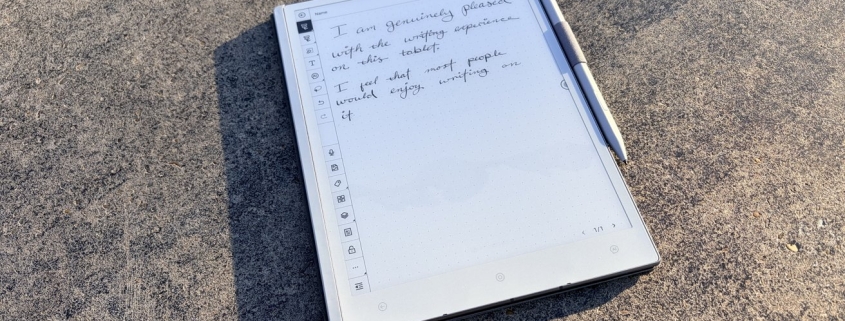 Name
I am genuinely pleased
with the writing experience
on this tablet.
I feel that most people
would enjoy writing on
it
1/1